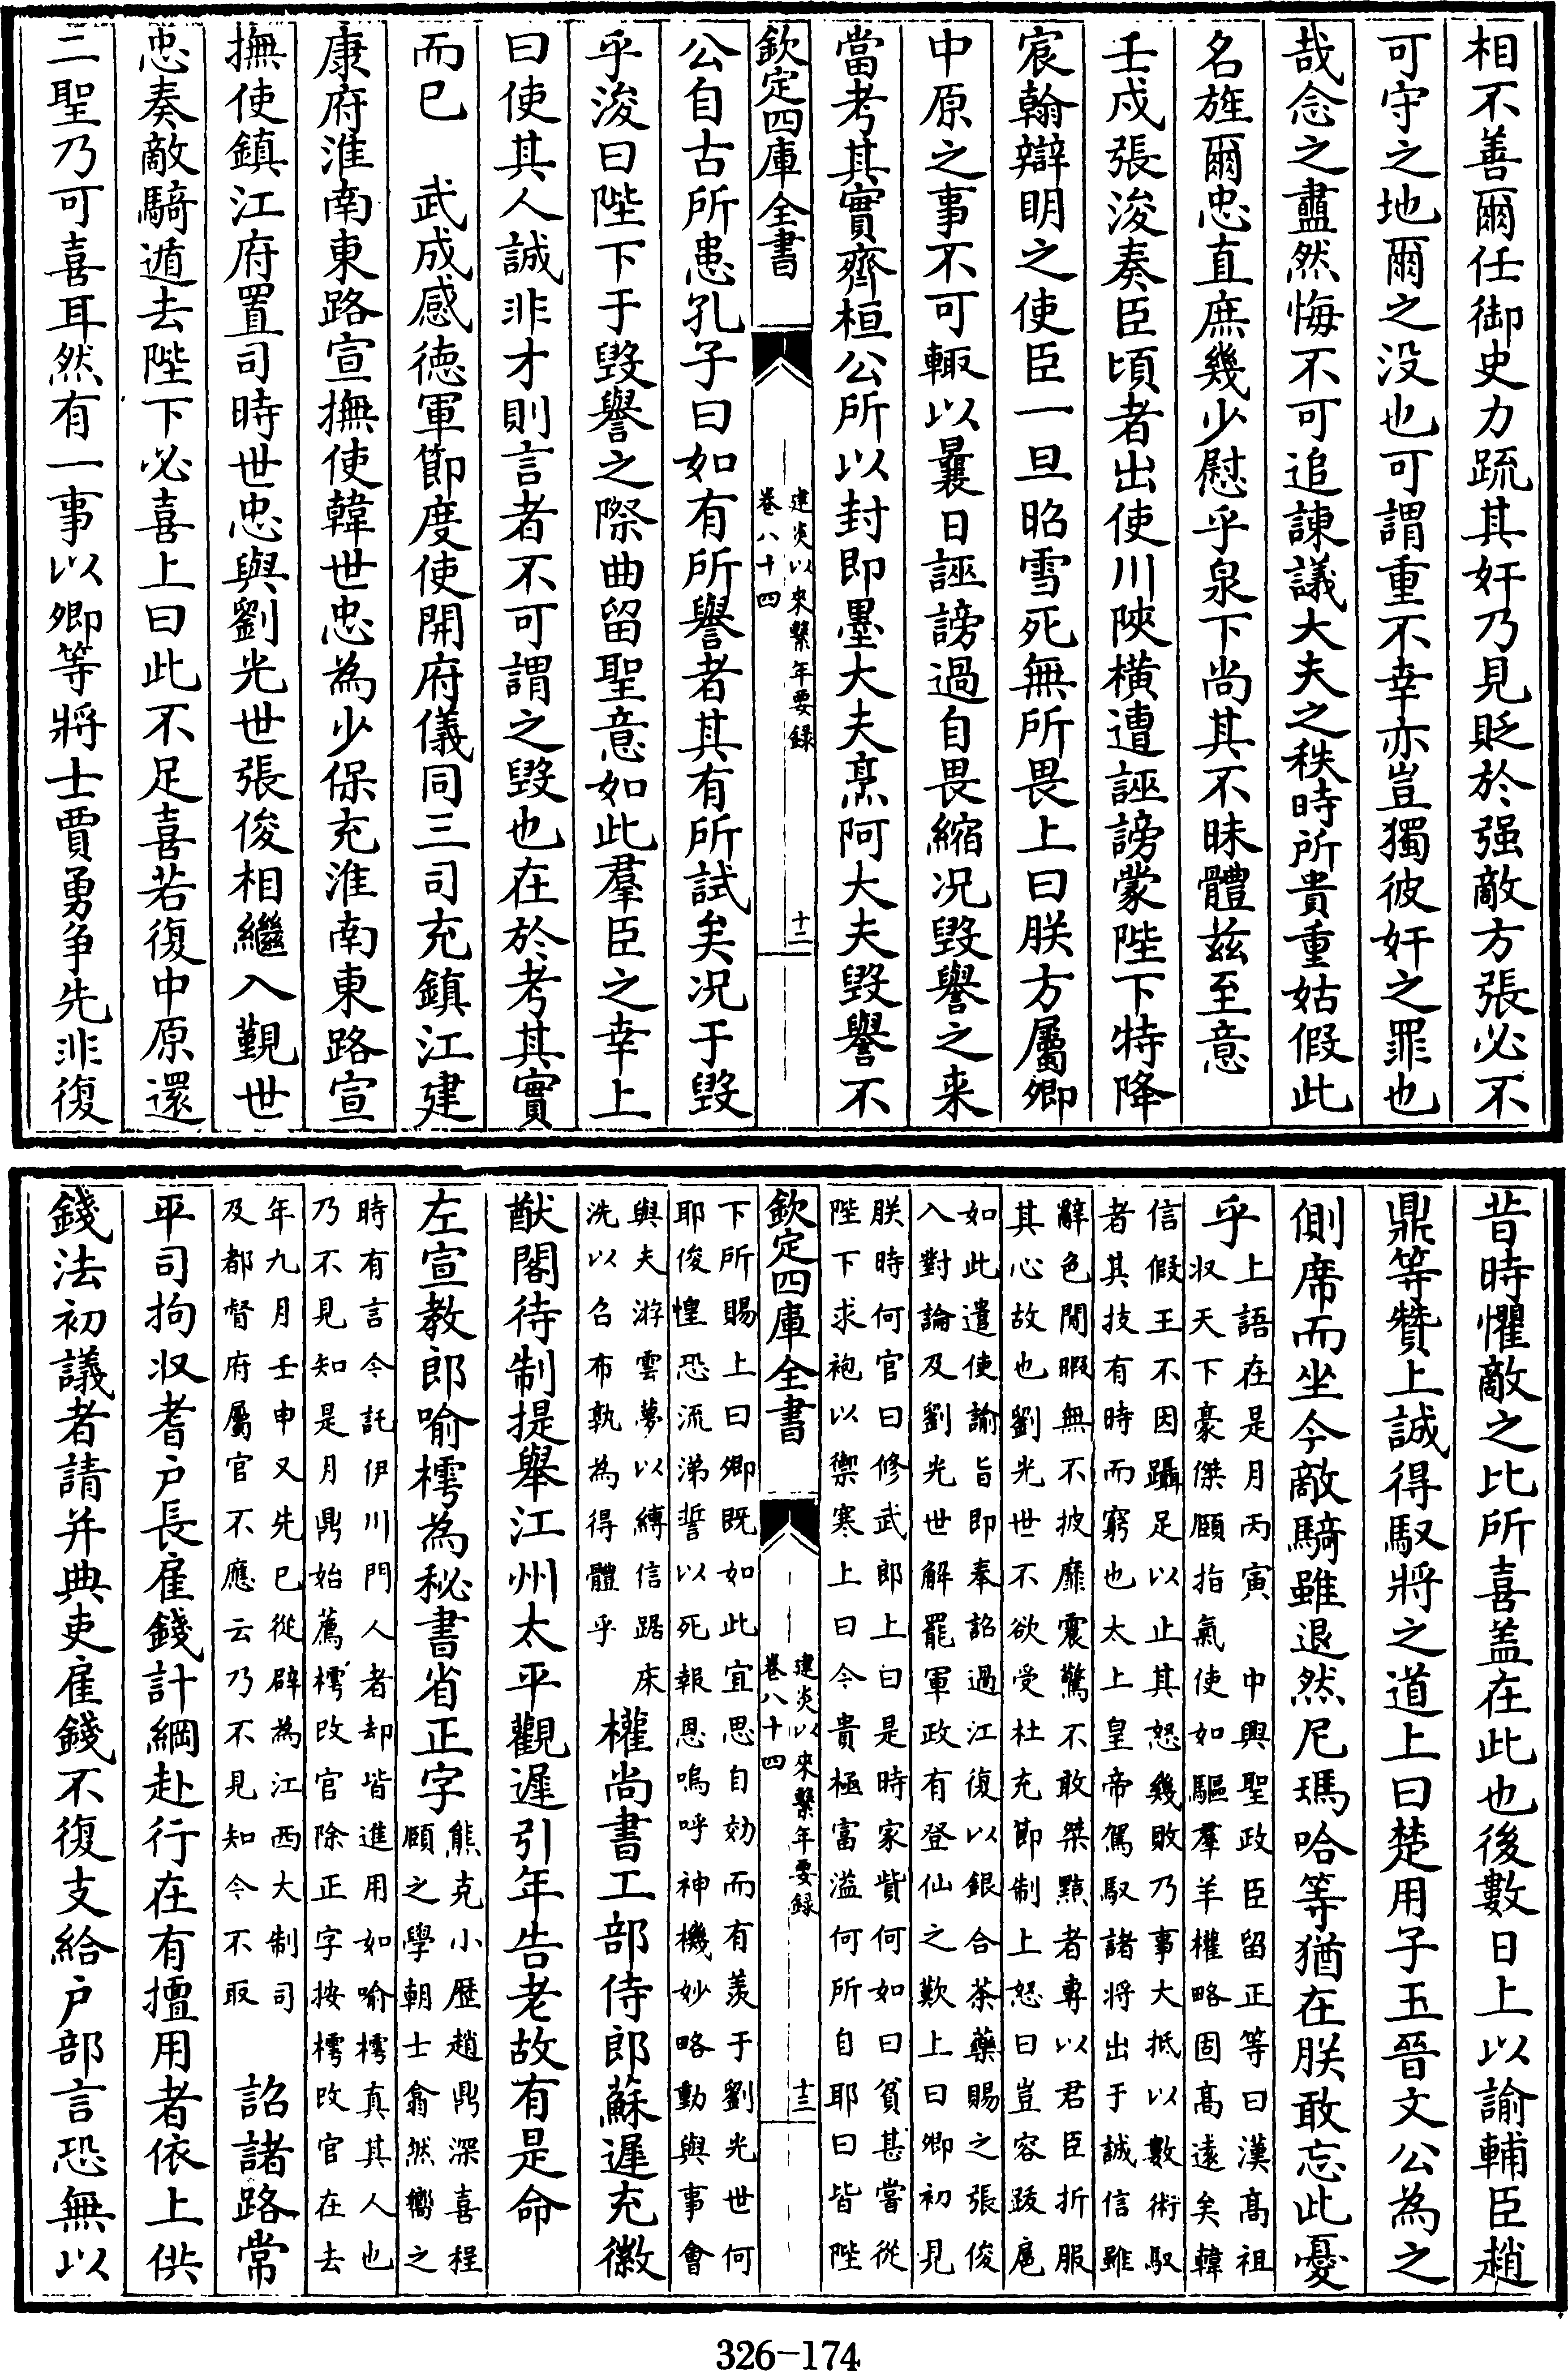 相不善爾任御史力疏其奸乃見貶於强敵方張必不
可守之地爾之没也可謂重不幸亦豈獨彼奸之罪也
哉念之盡然悔不可追諫議大夫之秩時所貴重姑假此
名旌爾忠直庶幾少慰乎泉下尚其不昧體兹至意
壬戍張浚奏臣頃者出使川陜横遭誣謗蒙陛下特降
宸翰辯明之使臣一旦昭雪死無所畏上曰朕方屬卿
中原之事不可輙以曩日誣謗過自畏縮况毀譽之来
當考其實齊桓公所以封即墨大夫烹阿大夫毀譽不
欽定四庫全書
建炎以來繫年要録
卷八十四
十二
公自古所患孔子曰如有所譽者其有所試矣况于毀
乎浚曰陛下于毀譽之際曲留聖意如此羣臣之幸上
曰使其人誠非才則言者不可謂之毀也在於考其實
而已 武成感德軍節度使開府儀同三司充鎮江建
康府淮南東路宣撫使韓世忠為少保充淮南東路宣
撫使鎮江府置司時世忠與劉光世張俊相繼入覲世
忠奏敵騎遁去陛下必喜上曰此不足喜若復中原還
二聖乃可喜耳然有一事以卿等將士賈勇争先非復
昔時懼敵之比所喜盖在此也後數日上以諭輔臣趙
鼎等贊上誠得馭將之道上曰楚用子玉晉文公為之
側席而坐今敵騎雖退然尼瑪哈等猶在朕敢忘此憂
乎
上語在是月丙寅 中興聖政臣留正等曰漢髙祖
収天下豪傑頤指氣使如驅羣羊權略固髙遠矣韓
信假王不因躡足以止其怒幾敗乃事大抵以數術馭
者其技有時而窮也太上皇帝駕馭諸將出于誠信雖
辭色閒暇無不披靡震驚不敢桀黠者専以君臣折服
其心故也劉光世不欲受杜充節制上怒曰豈容跋扈
如此遣使諭旨即奉詔過江復以銀合茶藥賜之張俊
入對論及劉光世解罷軍政有登仙之歎上曰卿初見
朕時何官曰修武郎上曰是時家貲何如曰貧甚嘗從
陛下求袍以禦寒上曰今貴極富溢何所自耶曰皆陛
欽定四庫全書
建炎以來繫年要録
卷八十四
十三
下所賜上曰卿既如此宜思自効而有羡于劉光世何
耶俊惶恐流涕誓以死報恩嗚呼神機妙略動與事會
與夫游雲夢以縛信踞床
洗以召布孰為得體乎
權尚書工部侍郎蘇遲充徽
猷閣待制提舉江州太平觀遲引年告老故有是命
左宣教郎喻樗為秘書省正字
熊克小歴趙鼎深喜程
頤之學朝士翕然嚮之
時有言今託伊川門人者却皆進用如喻樗真其人也
乃不見知是月鼎始薦樗改官除正字按樗改官在去
年九月壬申又先已從辟為江西大制司
及都督府屬官不應云乃不見知今不取
詔諸路常
平司拘収耆户長雇錢計綱赴行在有擅用者依上供
錢法初議者請并典吏雇錢不復支給户部言恐無以
326-174